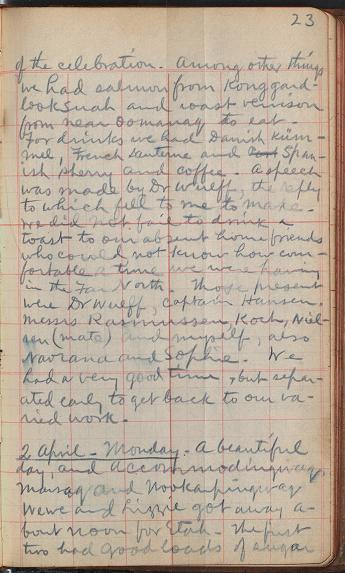 23
of the celebration. Among other things
we had salmon from Konggard-
looksuah and roast venison
from near Oomanaq to eat.
For drinks we had Danish Küm-
mel, French Sauterne and Span-
ish sherry and coffee. A speech
was made by Dr Wulff, the reply
to which fell to me to make.
We did not fail to drink a
toast to our absent home friends
who could not know how com-
fortable a time we were having
in the Far North. Those present
were Dr Wulff, Captain Hansen,
Messrs Rasmussen, Koch, Niel-
sen (mate) and myself, also
Navrana and Sophie. We
had a very good time, but separ-
ated early to get back to our va-
ried work.
2 April - Monday. A beautiful
day, and Accommodingwaq,
Marsaq and Nookapingwaq
Wewe and Lizzie got away a-
bout noon for Etah. The first
two had good loads of sugar